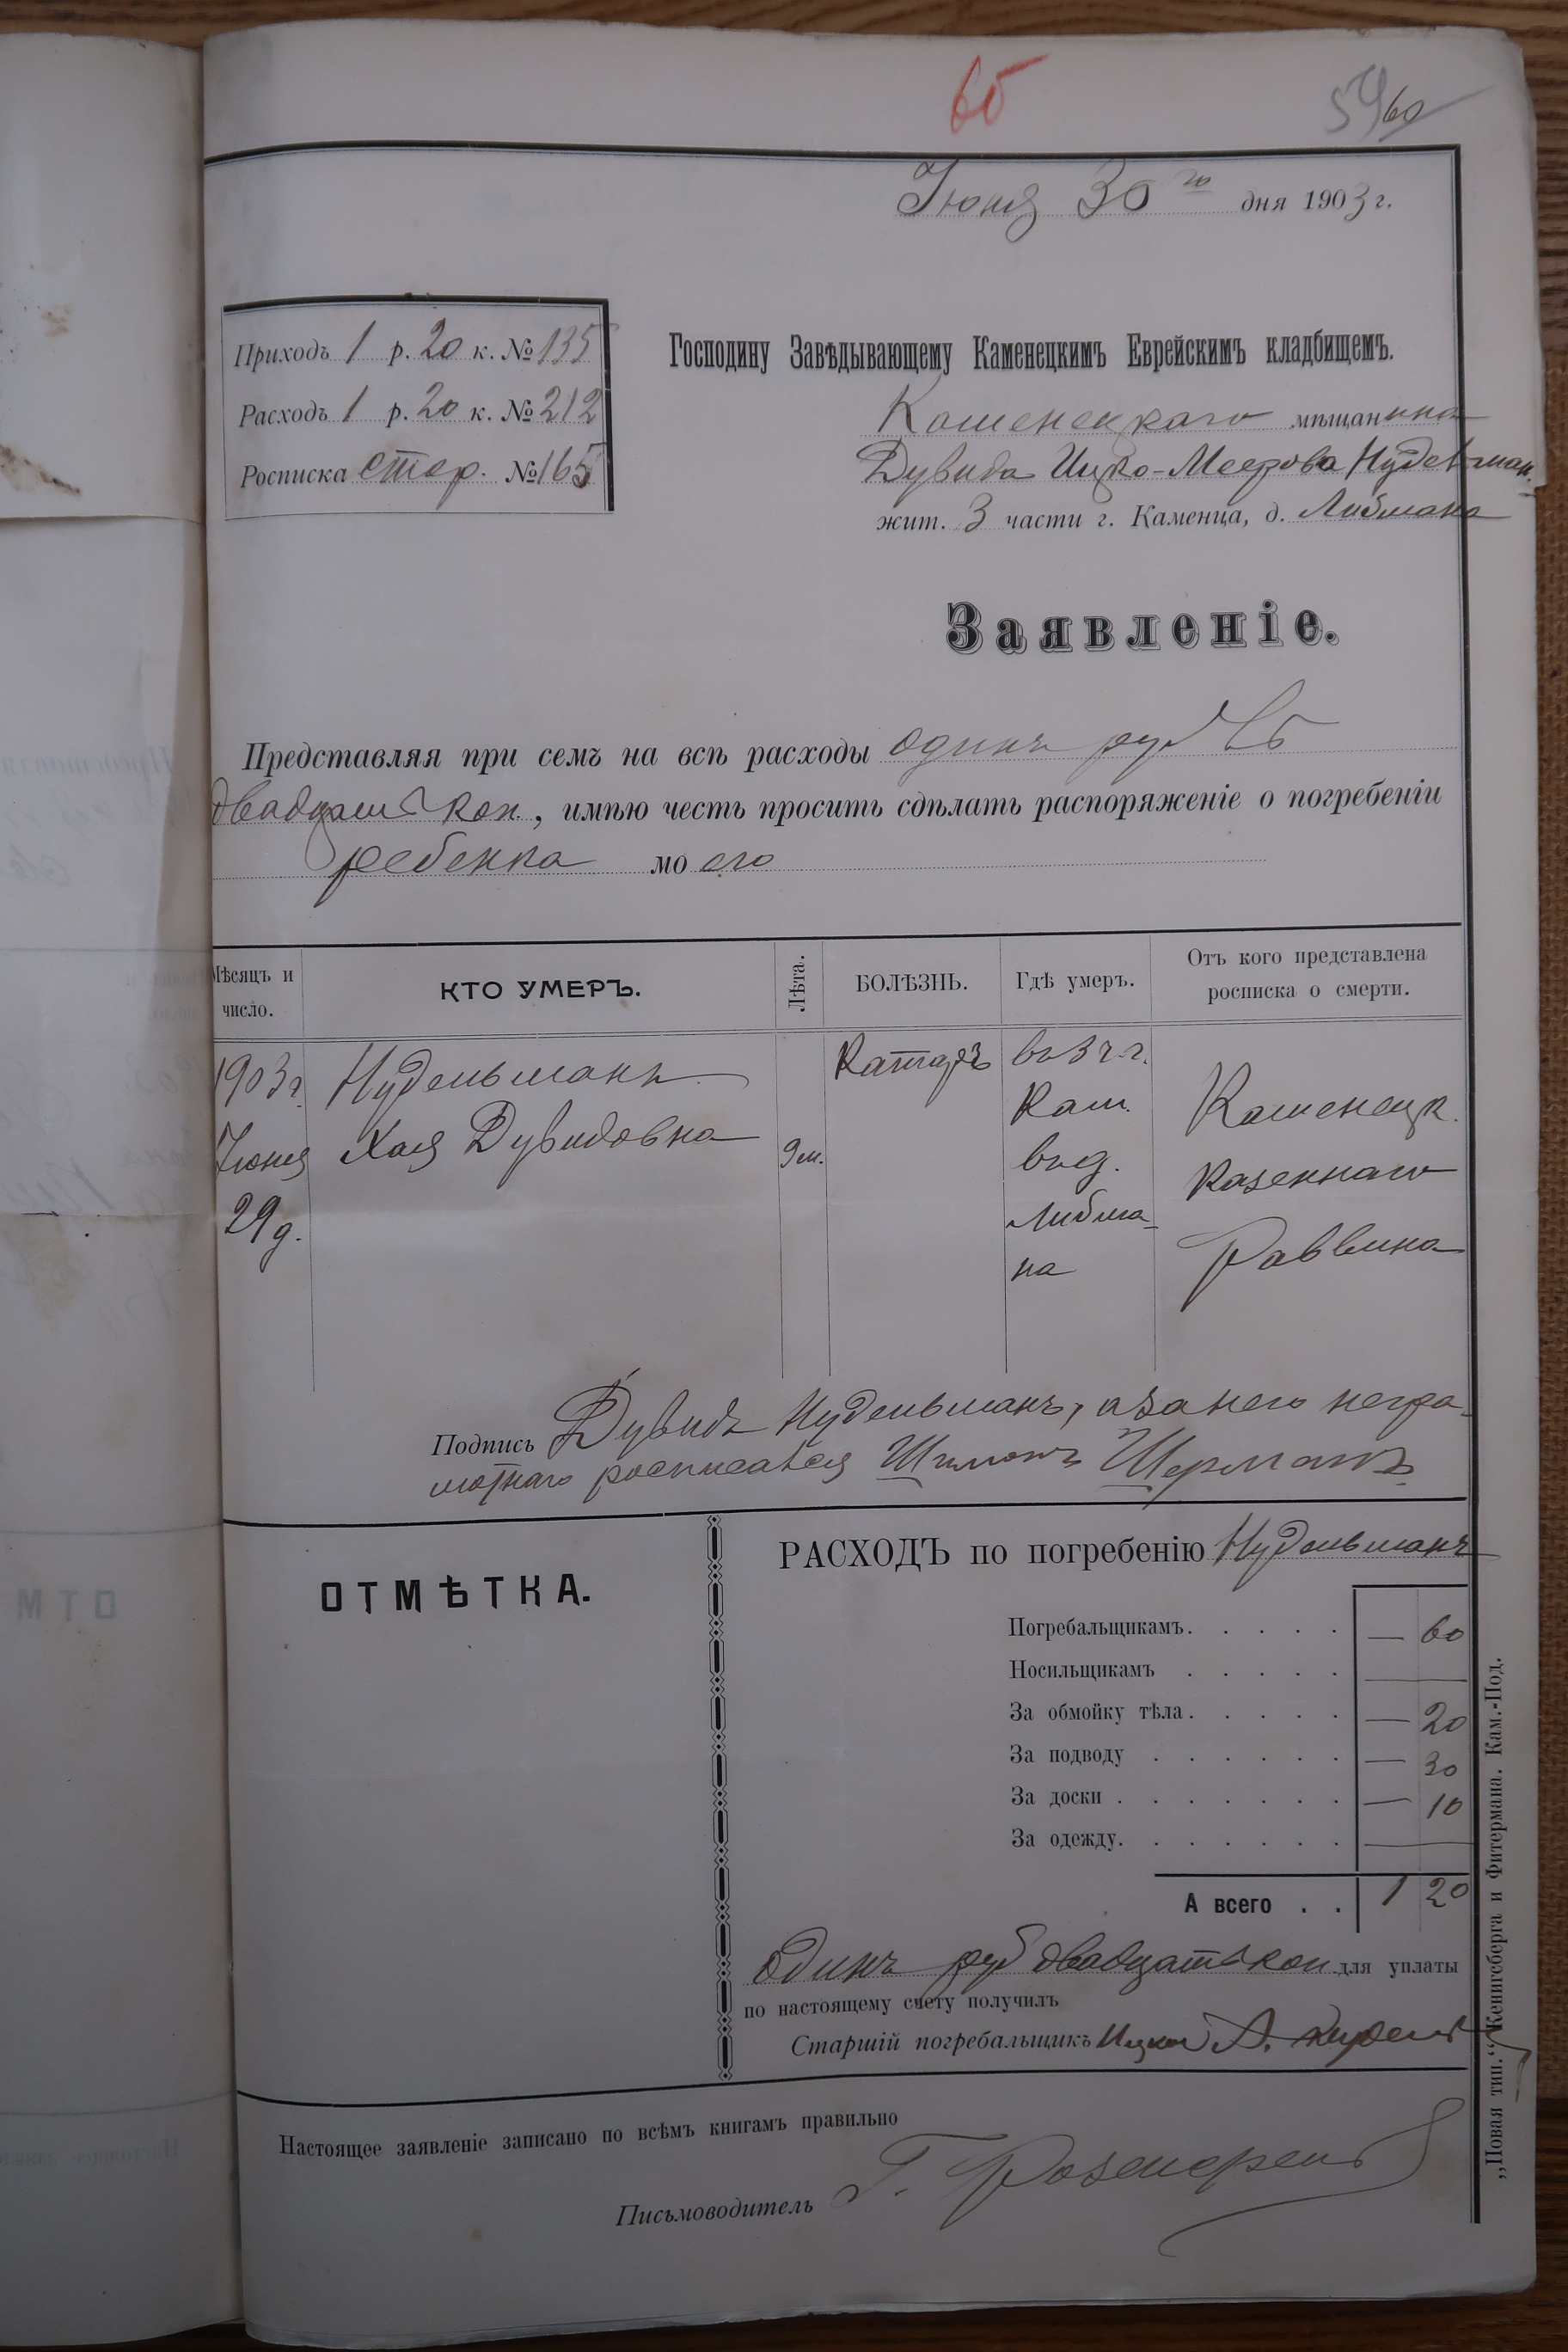 65
59/60
Іюня 30 го дня 1903 г.
Приходъ 1 р. 20 к. № 135
Расходъ 1 р. 20 к. № 212
Росписка стар. № 165
Господину Завѣдывающему Каменецкимъ Еврейскимъ кладбищемъ.
Каменецкаго мѣщанина
Дувида Ицко-Меерова Нудельман
жит. 3 части г. Каменца, д. Либмана
Заявленіе.
Представляя при семъ на всѣ расходы одинъ руб
двадцать коп., имѣю честь просить сдѣлать распоряженіе о погребеніи
ребенка моего
Мѣсяцъ и число.
КТО УМЕРЪ.
Лѣта.
БОЛѢЗНЬ.
Гдѣ умеръ.
Отъ кого представлена
росписка о смерти.
1903 г.
Іюня
29 д.
Нудельманъ
Хая Дувидовна
9 м.
Катаръ
въ 3 ч. г.
Кам.
въ д.
Либма-
на
Каменецк.
Казеннаго
Раввина
Подпись Дувидъ Нудельманъ, а за него негра-
мотнаго росписался Шимонъ Шерманъ
ОТМѢТКА.
РАСХОДЪ по погребенію Нудельманъ
Погребальщикамъ. . . . . — 60
Носильщикамъ . . . . . —
За обмойку тѣла. . . . . — 20
За подводу . . . . . . — 30
За доски . . . . . . . — 10
За одежду. . . . . . . —
А всего . . 1 20
Одинъ руб двадцать коп для уплаты
по настоящему счету получилъ
Старшій погребальщикъ Ицко А.
Настоящее заявленіе записано по всѣмъ книгамъ правильно
Письмоводитель Г.
„Новая тип.“ Кенигсберга и Фитермана. Кам.-Под.